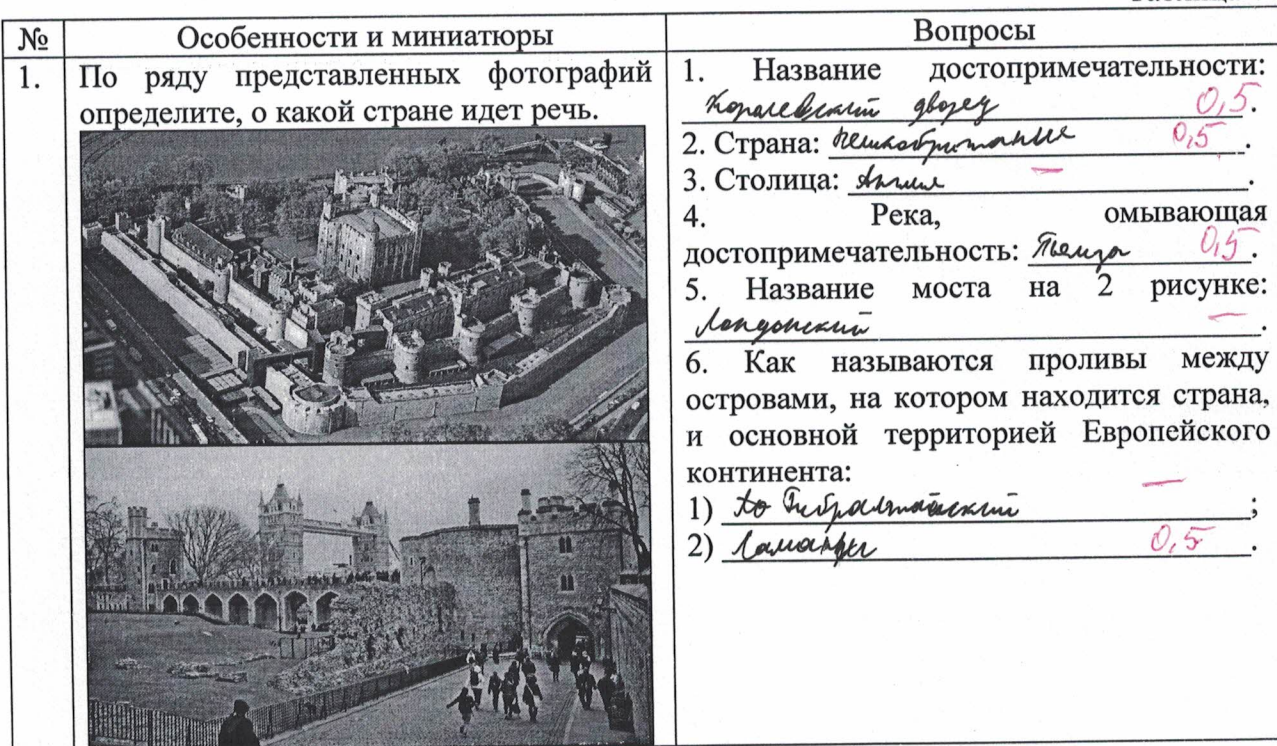 №
Особенности и миниатюры
Вопросы
1.
По ряду представленных фотографий
определите, о какой стране идет речь.
1. Название достопримечательности:
Королевский дворец 0,5.
2. Страна: Великобритания 0,5.
3. Столица: Англия —.
4. Река, омывающая
достопримечательность: Темза 0,5.
5. Название моста на 2 рисунке:
Лондонский —.
6. Как называются проливы между
островами, на котором находится страна,
и основной территорией Европейского
континента:
1) Гибралтарский —;
2) Ламанш 0,5.